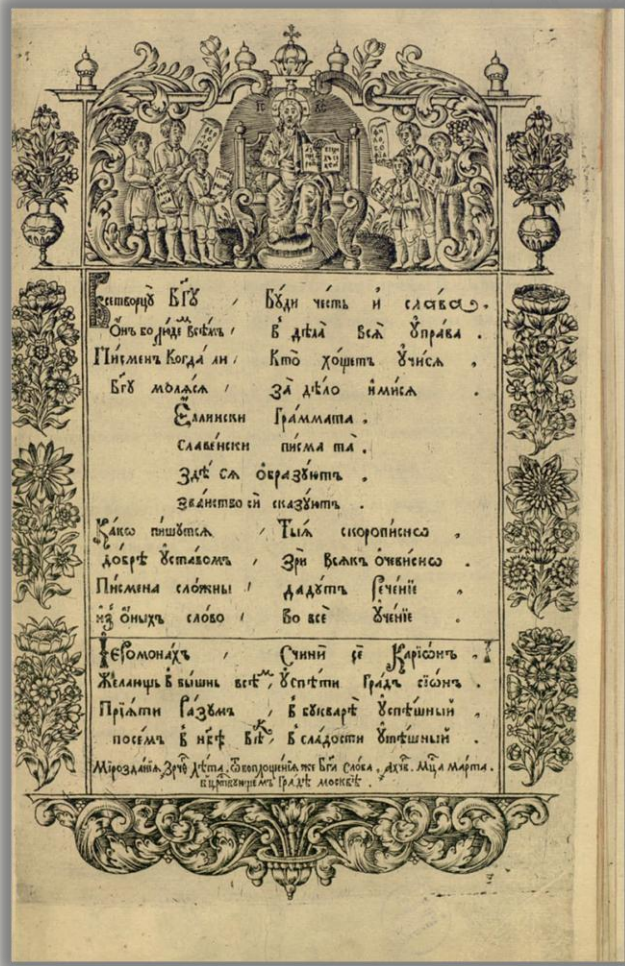 ІС ХС
Всетворцꙋ̀ БГ҃Ꙋ , Бꙋ́ди че́сть и҆ сла́ва .
О҆́нъ бо лю́демъ всѣ̑мъ , в̾ дѣ́ла всѧ̑ ᲂу҆пра́ва .
Пи́сменъ Когда́ ли , Кто̀ хо́щетъ ᲂу҆чи́сѧ ,
Бг҃ꙋ молѧ́сѧ , За̀ дѣ́ло и҆ми́сѧ .
Е҆́ллински Гра́ммата .
славе́нски писма̀ та̀ .
Здѣ̀ сѧ ѻ҆бразꙋ́ютъ .
зва́нство сѝ сказꙋ́ютъ .
Ка́кѡ пи́шꙋтсѧ , Ты̑ѧ скоро́писнѡ ,
до́брѣ ᲂу҆ста́вомъ , Зрѝ всѧ́къ ѻ҆чеви́снѡ .
Пи́смена сло́жны , даду́тъ Рече́нїе ,
и҆з̾ ѻ҆́ныхъ сло́во , Во всѐ ᲂу҆че́нїе .
І҆еромона́хъ , Счинѝ сѐ Карїѡ́нъ .
Жела́ѧшь в̾ вы́шнь всѣ́мъ , ᲂу҆спѣ́ти Гра́дъ сїѡ́нъ .
Прїѧ́ти Ра́зꙋмъ , в̾ бꙋкварѣ̀ ᲂу҆спѣ́шный ,
посе́мъ в̾ нб҃ѣ вѣ́къ , в̾ сла́дости ᲂу҆тѣ́шный .
Мірозда́нїѧ, ЗРЧ҃в Лѣ́та. ѿ воплоще́нїѧ же Бг҃а Сло́ва . ,аХч҃в . Мц҃а ма́рта .
в̾ ца́рствꙋющемъ Гра́дѣ москвѣ̀ .